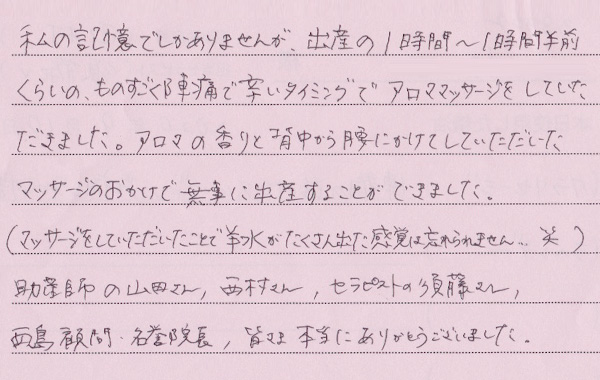 私の記憶でしかありませんが、出産の1時間〜1時間半前
くらいの、ものすごく陣痛で辛いタイミングでアロママッサージをしていた
だきました。アロマの香りと背中から腰にかけてしていただいた
マッサージのおかげで無事に出産することができました。
(マッサージをしていただいたことで羊水がたくさん出た感覚は忘れられません… 笑)
助産師の山田さん, 西村さん, セラピストの須藤さん,
西島顧問・名誉院長, 皆さま本当にありがとうございました。